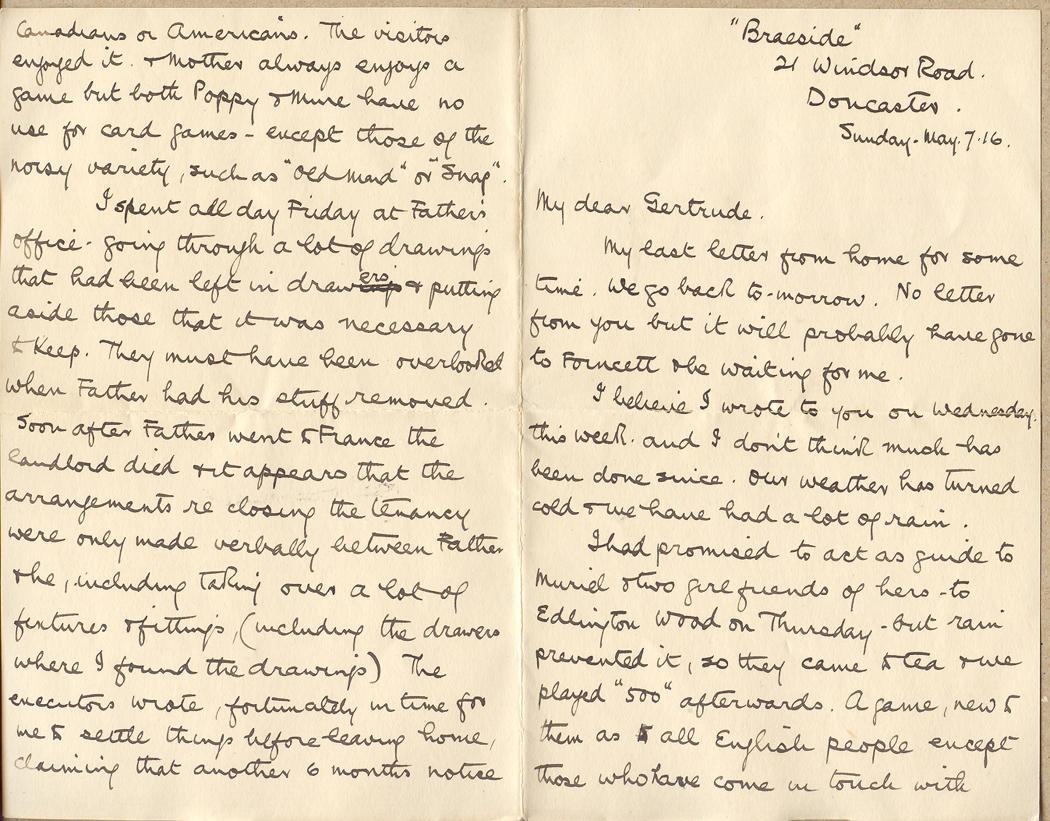 "Braeside"
21 Windsor Road.
Doncaster.
Sunday - May. 7.16.
My dear Gertrude.
My last letter from home for some
time. We go back to-morrow. No letter
from you but it will probably have gone
to Forncett & be waiting for me.
I believe I wrote to you on Wednesday.
this week. and I don't think much has
been done since. Our weather has turned
cold & we have had a lot of rain.
I had promised to act as guide to
Muriel & two girl friends of hers - to
Edlington Wood on Thursday - but rain
prevented it, so they came to tea & we
played "500" afterwards. A game, new to
them as to all English people except
those who have come in touch with
Canadians or Americans. The visitors
enjoyed it. & Mother always enjoys a
game but both Poppy & Mune have no
use for card games - except those of the
noisy variety, such as "Old Maid" or "Snap".
I spent all day Friday at Father's
office - going through a lot of drawings
that had been left in drawers & putting
aside those that it was necessary
to keep. They must have been overlooked
when Father had his stuff removed.
Soon after Father went to France the
landlord died & it appears that the
arrangements re closing the tenancy
were only made verbally between Father
& he, including taking over a lot of
fixtures & fittings, (including the drawers
where I found the drawings) The
executors wrote, fortunately in time for
me to settle things before leaving home,
claiming that another 6 months notice